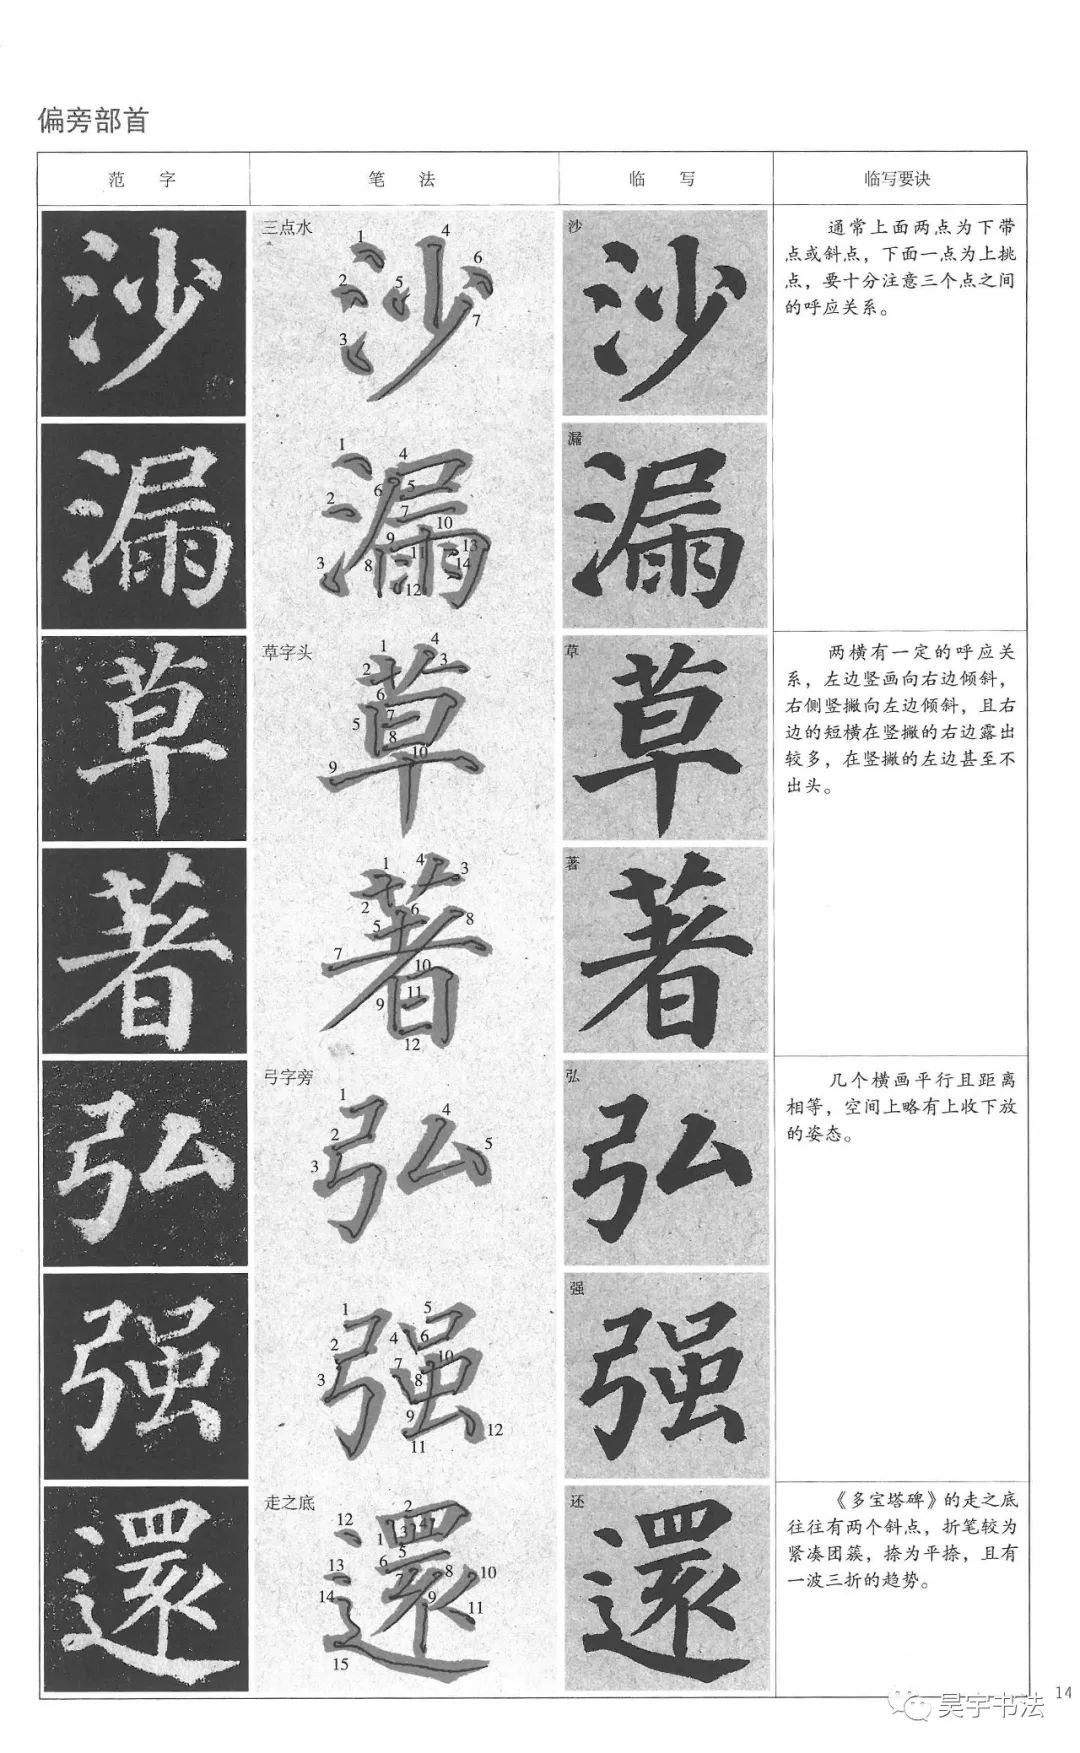 偏旁部首
范 字 笔 法 临 写 临写要诀
沙 三点水 1 2 3 4 5 6 7 沙 沙
通常上面两点为下带
点或斜点，下面一点为上挑
点，要十分注意三个点之间
的呼应关系。
漏 1 2 3 4 5 6 7 8 9 10 11 12 13 14 漏 漏
草 草字头 1 2 3 4 5 6 7 8 9 10 草 草
两横有一定的呼应关
系，左边竖画向右边倾斜，
右侧竖撇向左边倾斜，且右
边的短横在竖撇的右边露出
较多，在竖撇的左边甚至不
出头。
著 1 2 3 4 5 6 7 8 9 10 11 12 著 著
弘 弓字旁 1 2 3 4 5 弘 弘
几个横画平行且距离
相等，空间上略有上收下放
的姿态。
强 1 2 3 4 5 6 7 8 9 10 11 12 强 强
還 走之底 1 2 3 4 5 6 7 8 9 10 11 12 13 14 15 还 還
《多宝塔碑》的走之底
往往有两个斜点，折笔较为
紧凑团簇，捺为平捺，且有
一波三折的趋势。
昊宇书法
14